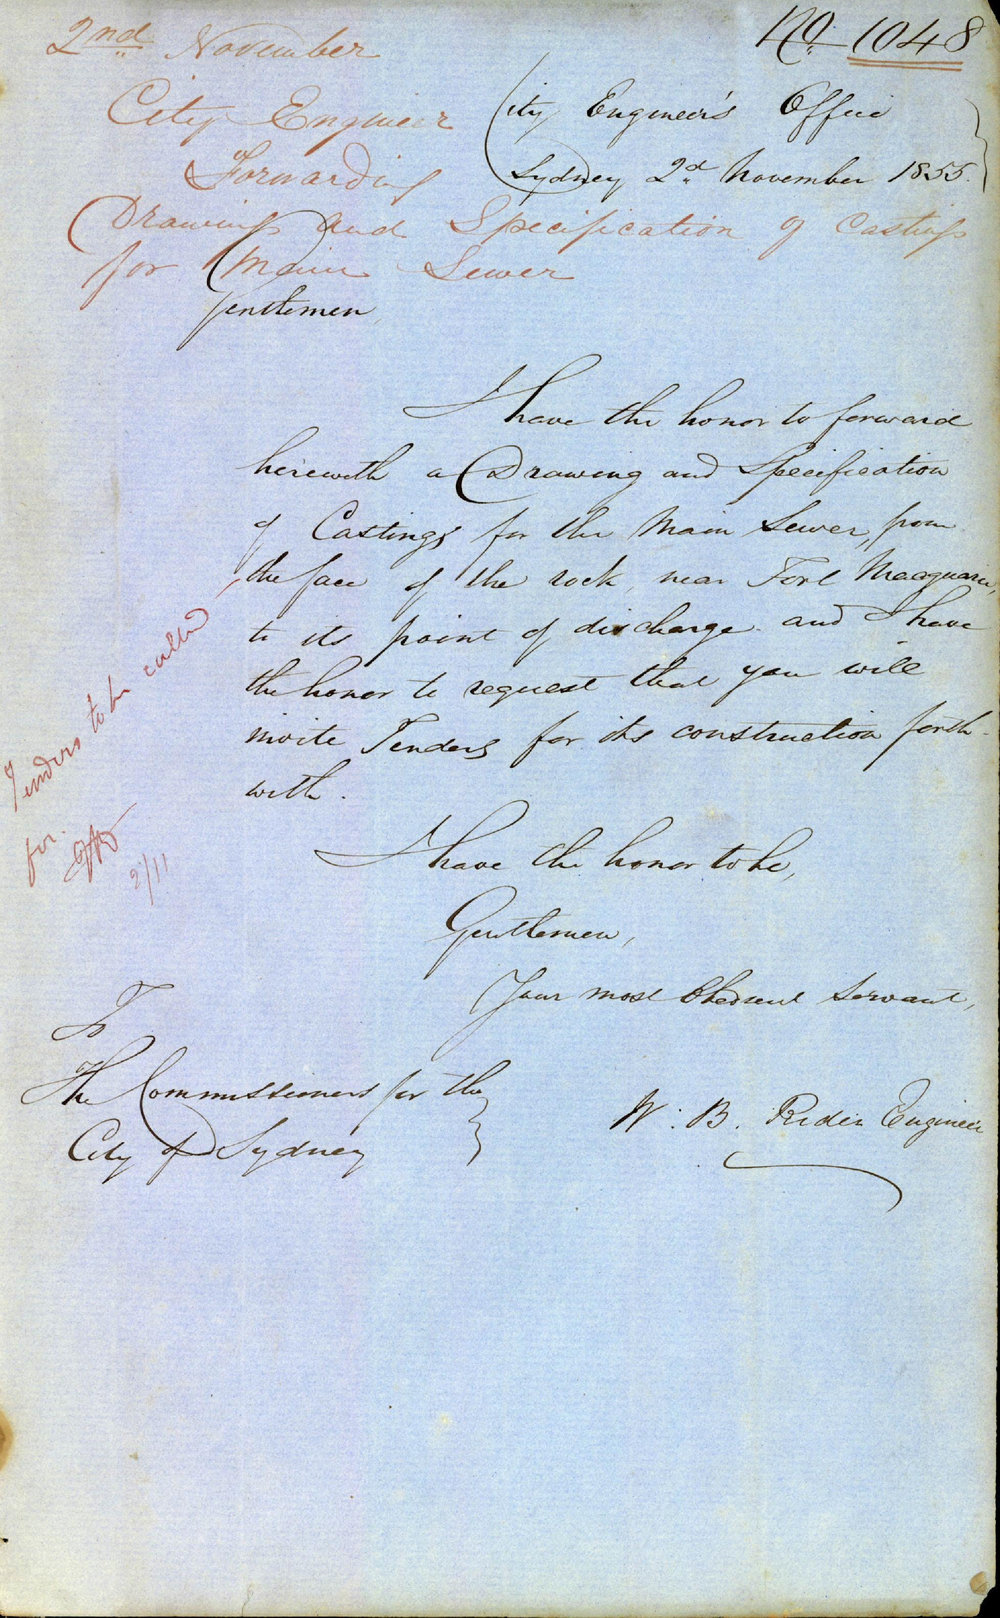 2nd November
No. 1048
City Engineer
Forwarding
Drawings and Specification of Castings
for Main Sewer
City Engineer's Office
Sydney 2d November 1855.
Gentlemen,
I have the honor to forward
herewith a Drawing and Specification
of Castings for the Main Sewer, from
the face of the rock, near Fort Macquarie,
to its point of discharge and I have
the honor to request that you will
invite Tenders for its construction forth-
with.
I have the honor to be,
Gentlemen,
Your most Obedient Servant,
W. B. Rider Engineer
To
The Commissioners for the
City of Sydney
Tenders to be called
for.
2/11